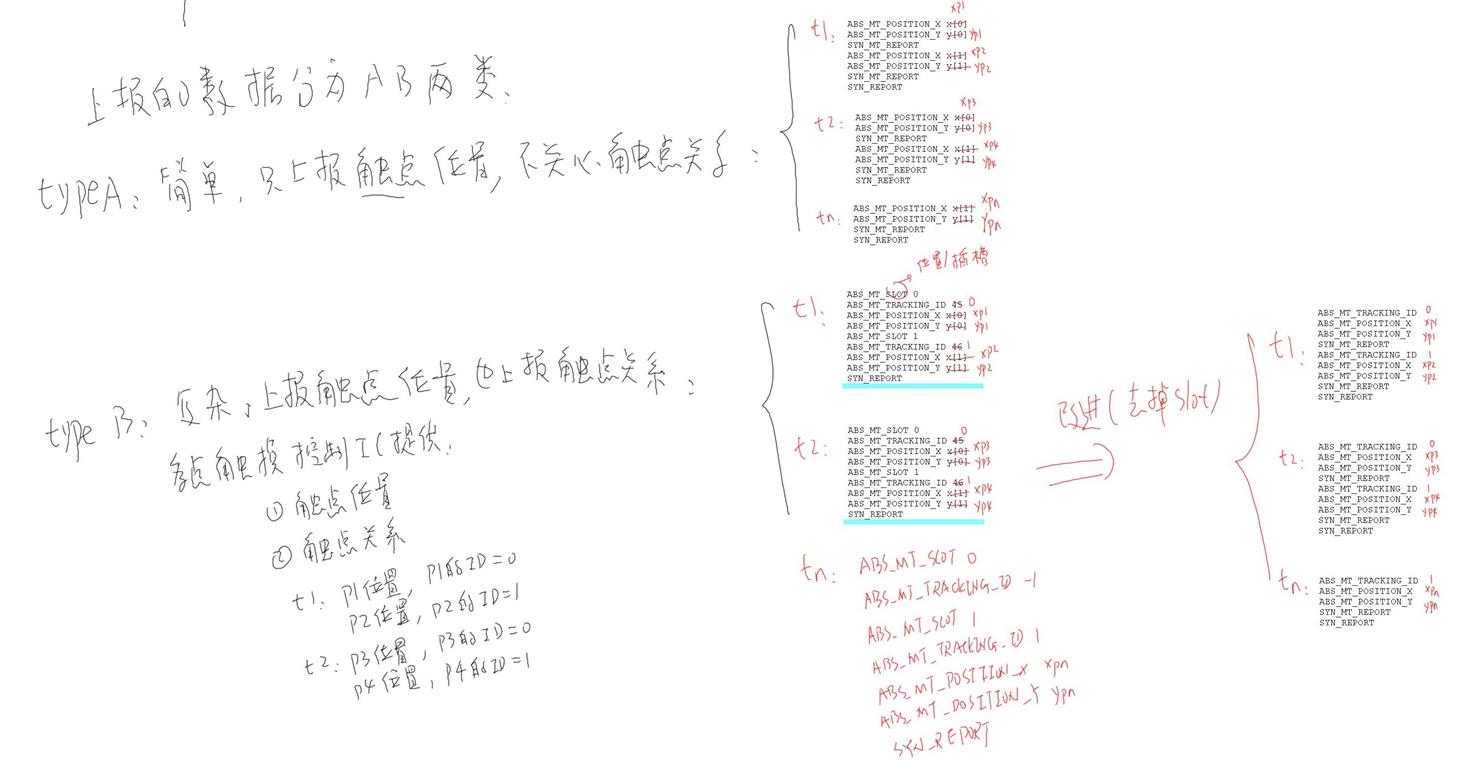 上报的数据分为AB两类.
typeA: 简单, 只上报触点位置, 不关心触点关系:
t1:
xp1
ABS_MT_POSITION_X x[0]
ABS_MT_POSITION_Y y[0] yp1
SYN_MT_REPORT
ABS_MT_POSITION_X x[1] xp2
ABS_MT_POSITION_Y y[1] yp2
SYN_MT_REPORT
SYN_REPORT
t2:
xp3
ABS_MT_POSITION_X x[0]
ABS_MT_POSITION_Y y[0] yp3
SYN_MT_REPORT
ABS_MT_POSITION_X x[1] xp4
ABS_MT_POSITION_Y y[1] yp4
SYN_MT_REPORT
SYN_REPORT
tn:
ABS_MT_POSITION_X x[1] xpn
ABS_MT_POSITION_Y y[1] ypn
SYN_MT_REPORT
SYN_REPORT
type B: 复杂, 上报触点位置, 也上报触点关系:
多点触摸控制IC提供:
① 触点位置
② 触点关系
t1: p1位置, p1的ID=0
p2位置, p2的ID=1
t2: p3位置, p3的ID=0
p4位置, p4的ID=1
位置/插槽
t1:
ABS_MT_SLOT 0
ABS_MT_TRACKING_ID 45 0
ABS_MT_POSITION_X x[0] xp1
ABS_MT_POSITION_Y y[0] yp1
ABS_MT_SLOT 1
ABS_MT_TRACKING_ID 46 1
ABS_MT_POSITION_X x[1] xp2
ABS_MT_POSITION_Y y[1] yp2
SYN_REPORT
t2:
ABS_MT_SLOT 0
ABS_MT_TRACKING_ID 45 0
ABS_MT_POSITION_X x[0] xp3
ABS_MT_POSITION_Y y[0] yp3
ABS_MT_SLOT 1
ABS_MT_TRACKING_ID 46 1
ABS_MT_POSITION_X x[1] xp4
ABS_MT_POSITION_Y y[1] yp4
SYN_REPORT
tn:
ABS_MT_SLOT 0
ABS_MT_TRACKING_ID -1
ABS_MT_SLOT 1
ABS_MT_TRACKING_ID 1
ABS_MT_POSITION_X xpn
ABS_MT_POSITION_Y ypn
SYN_REPORT
改进(去掉slot)
t1:
ABS_MT_TRACKING_ID 0
ABS_MT_POSITION_X xp1
ABS_MT_POSITION_Y yp1
SYN_MT_REPORT
ABS_MT_TRACKING_ID 1
ABS_MT_POSITION_X xp2
ABS_MT_POSITION_Y yp2
SYN_MT_REPORT
SYN_REPORT
t2:
ABS_MT_TRACKING_ID 0
ABS_MT_POSITION_X xp3
ABS_MT_POSITION_Y yp3
SYN_MT_REPORT
ABS_MT_TRACKING_ID 1
ABS_MT_POSITION_X xp4
ABS_MT_POSITION_Y yp4
SYN_MT_REPORT
SYN_REPORT
tn:
ABS_MT_TRACKING_ID 1
ABS_MT_POSITION_X xpn
ABS_MT_POSITION_Y ypn
SYN_MT_REPORT
SYN_REPORT